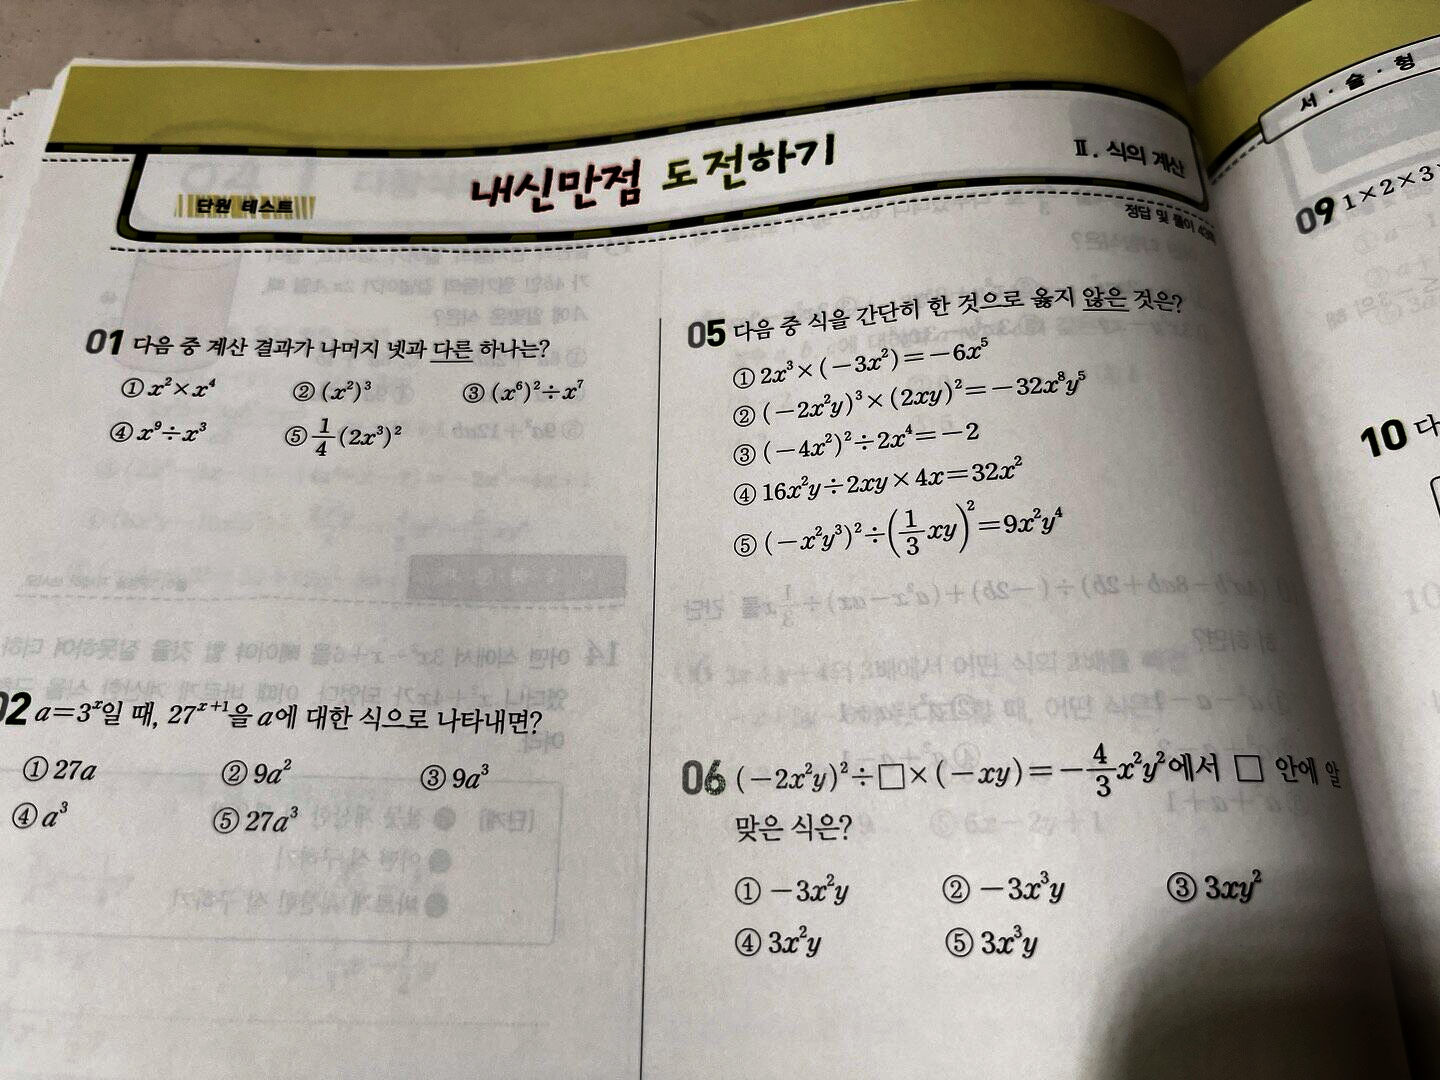 단원 테스트
내신만점 도전하기
Ⅱ. 식의 계산
정답 및 풀이
01 다음 중 계산 결과가 나머지 넷과 다른 하나는?
① x²×x⁴ ② (x²)³ ③ (x⁶)²÷x⁷
④ x⁹÷x³ ⑤ 1/4(2x³)²
02 a=3ˣ일 때, 27ˣ⁺¹을 a에 대한 식으로 나타내면?
① 27a ② 9a² ③ 9a³
④ a³ ⑤ 27a³
05 다음 중 식을 간단히 한 것으로 옳지 않은 것은?
① 2x³×(-3x²)=-6x⁵
② (-2x²y)³×(2xy)²=-32x⁸y⁵
③ (-4x²)²÷2x⁴=-2
④ 16x²y÷2xy×4x=32x²
⑤ (-x²y³)²÷(1/3xy)²=9x²y⁴
06 (-2x²y)²÷□×(-xy)=-4/3x²y²에서 □ 안에 알
맞은 식은?
① -3x²y ② -3x³y ③ 3xy²
④ 3x²y ⑤ 3x³y
서·술·형
09 1×2×3
10 다